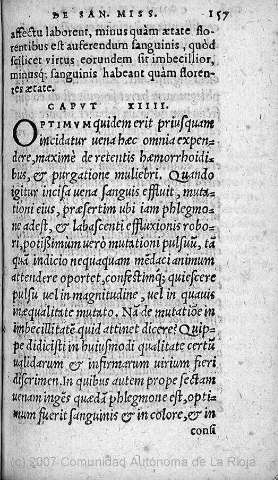 DE SAN. MISS. 157
affectu laborent, minus quàm ætate flo-
rentibus est auferendum sanguinis, quòd
scilicet virtus eorundem sit imbecillior,
minusq; sanguinis habeant quàm floren-
tes ætate.
CAPVT XIIII.
OPTIMVM quidem erit priusquam
incidatur uena hæc omnia expen-
dere, maximè de retentis hæmorrhoidi-
bus, & purgatione muliebri. Quando
igitur incisa uena sanguis effluit, muta-
tioni eius, præsertim ubi iam phlegmo-
ne adest, & labascenti effluxionis robo-
ri, potissimum uerò mutationi pulsuũ, tã
quã indicio nequaquam mẽdaci animum
attendere oportet, confestimq; quiescere
pulsu uel in magnitudine, uel in quauis
inæqualitate mutato. Nã de mutatiõe in
imbecillitatẽ quid attinet dicere? Quip-
pe didicisti in huiusmodi qualitate certũ
ualidarum & infirmarum uirium fieri
discrimen. In quibus autem prope sectam
uenam ingẽs quædã phlegmone est, opti-
mum fuerit sanguinis & in colore, & in
consi
(c) 2007 Comunidad Autónoma de La Rioja